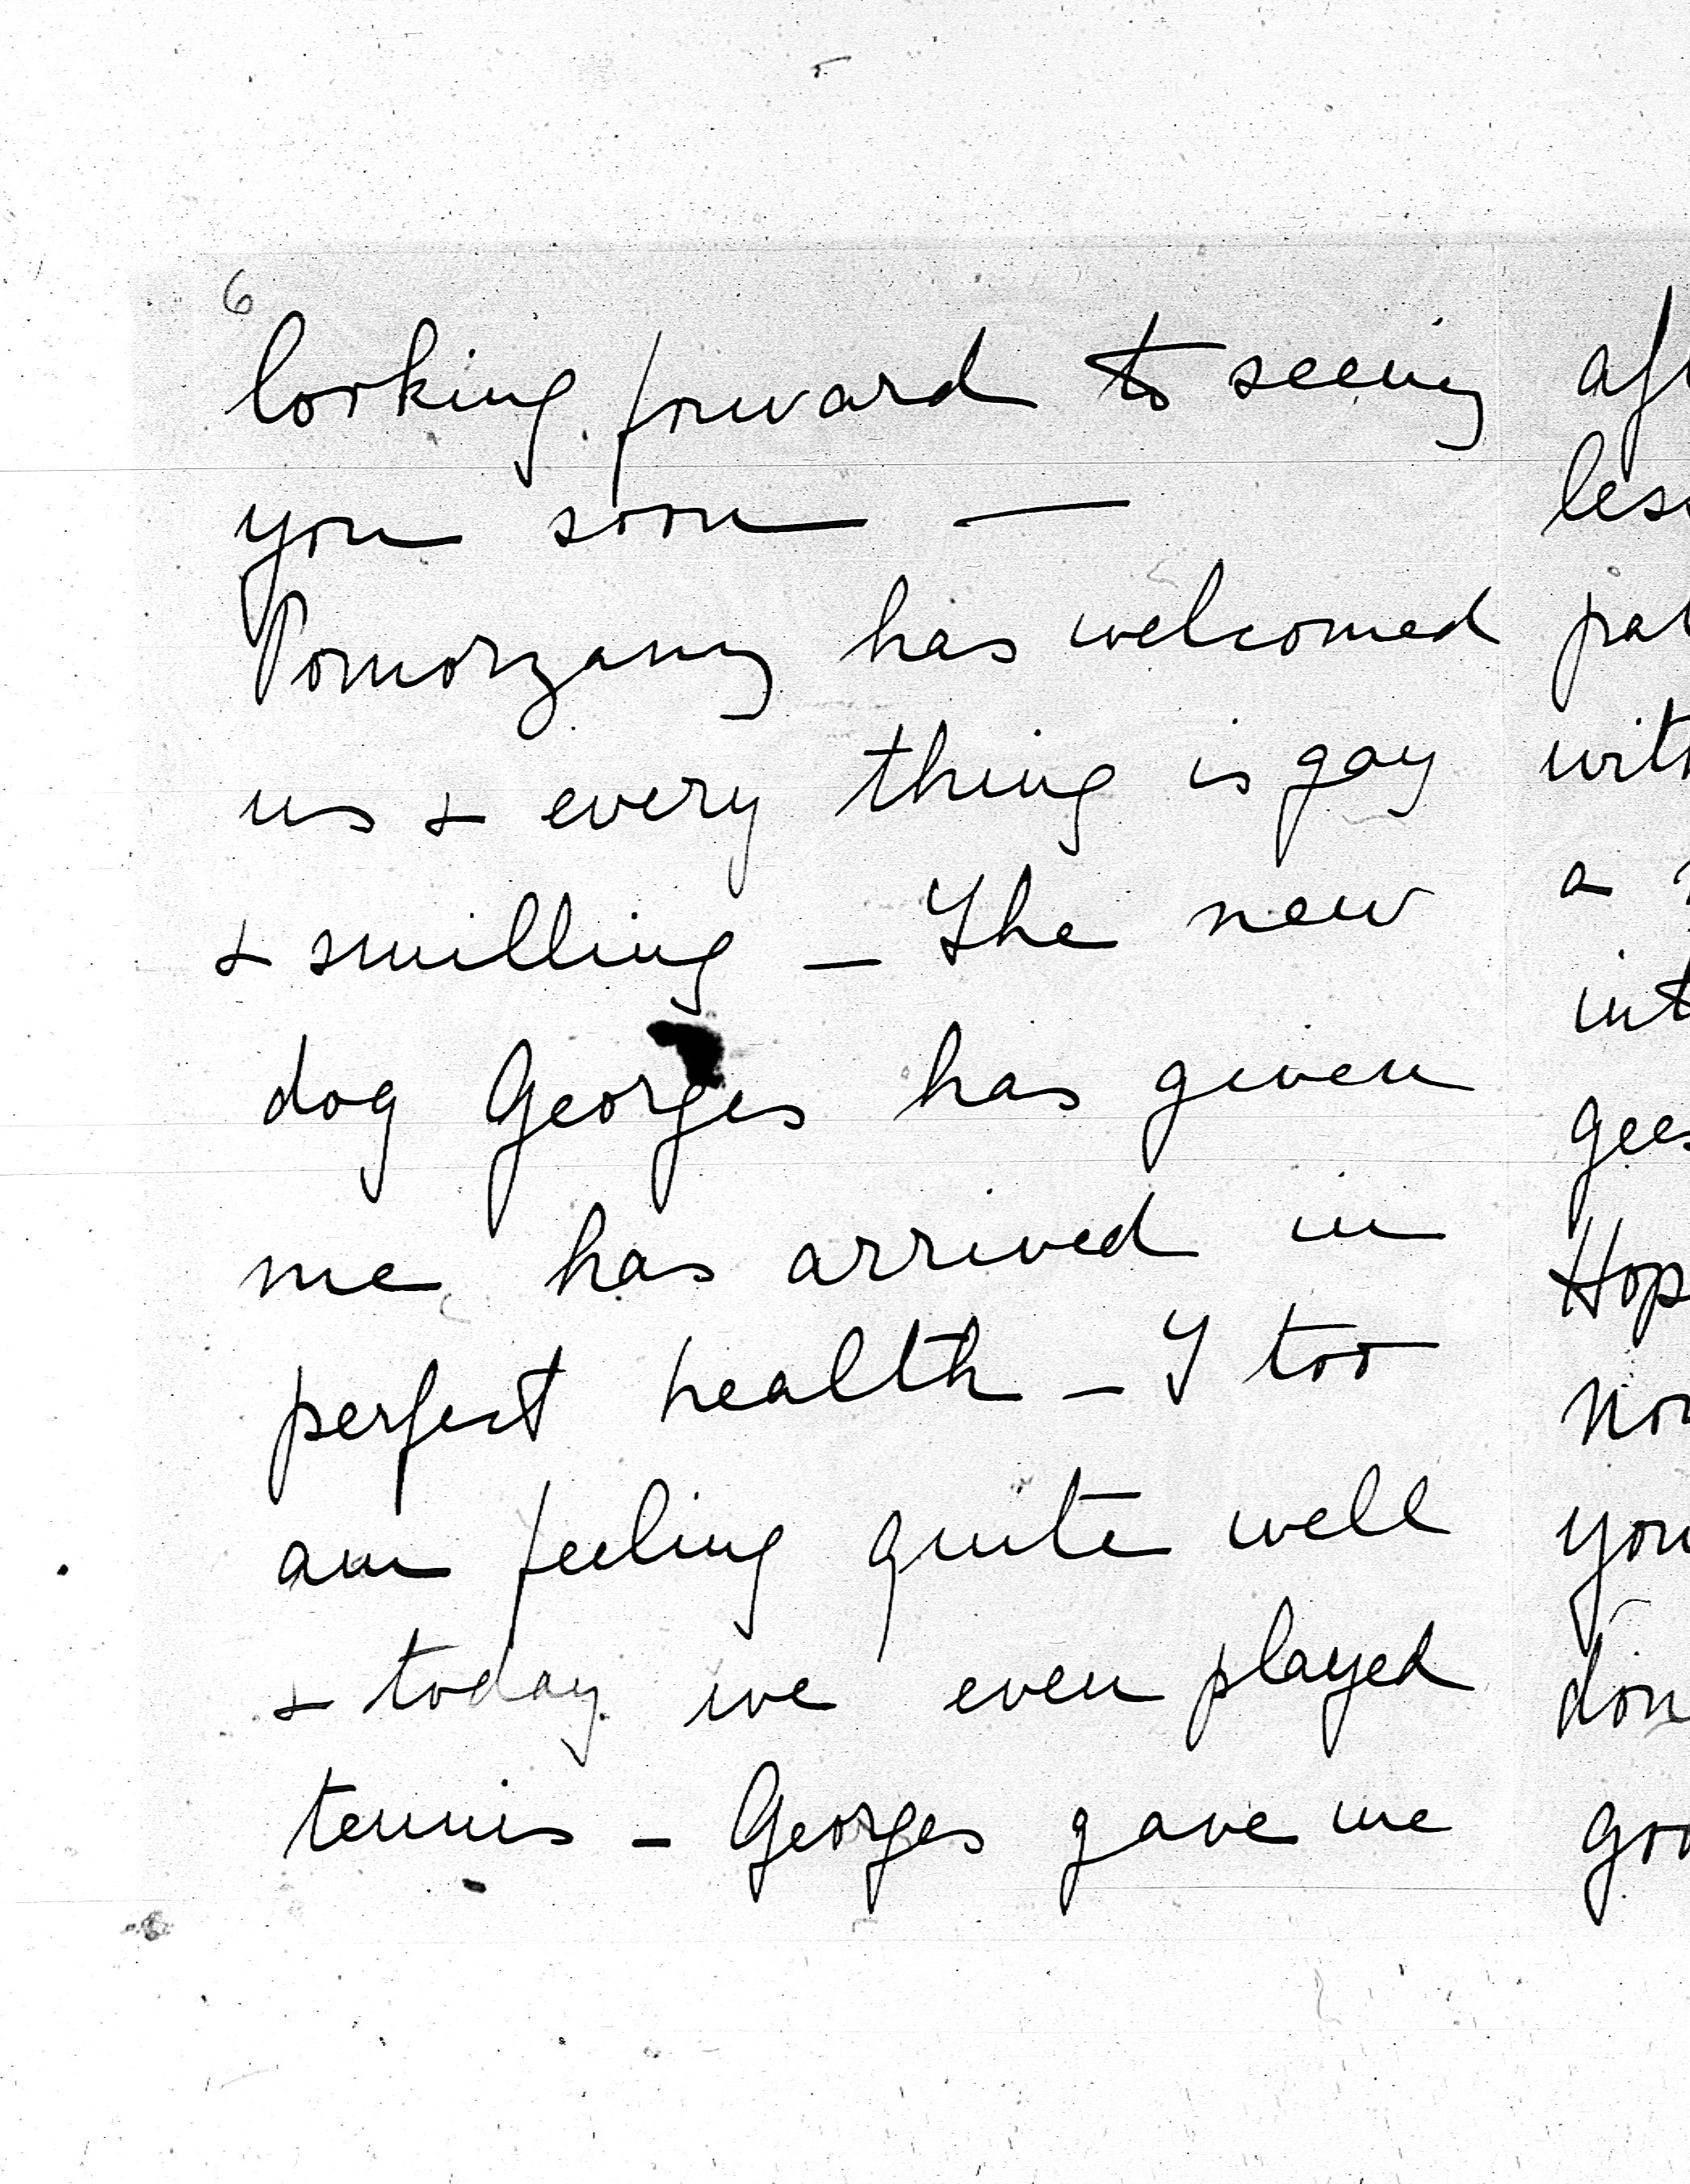 6
looking forward to seeing
you soon —
Pomorzany has welcomed
us & every thing is gay
& smilling — The new
dog Georges has given
me has arrived in
perfect health — I too
am feeling quite well
& today we even played
tennis — Georges gave me